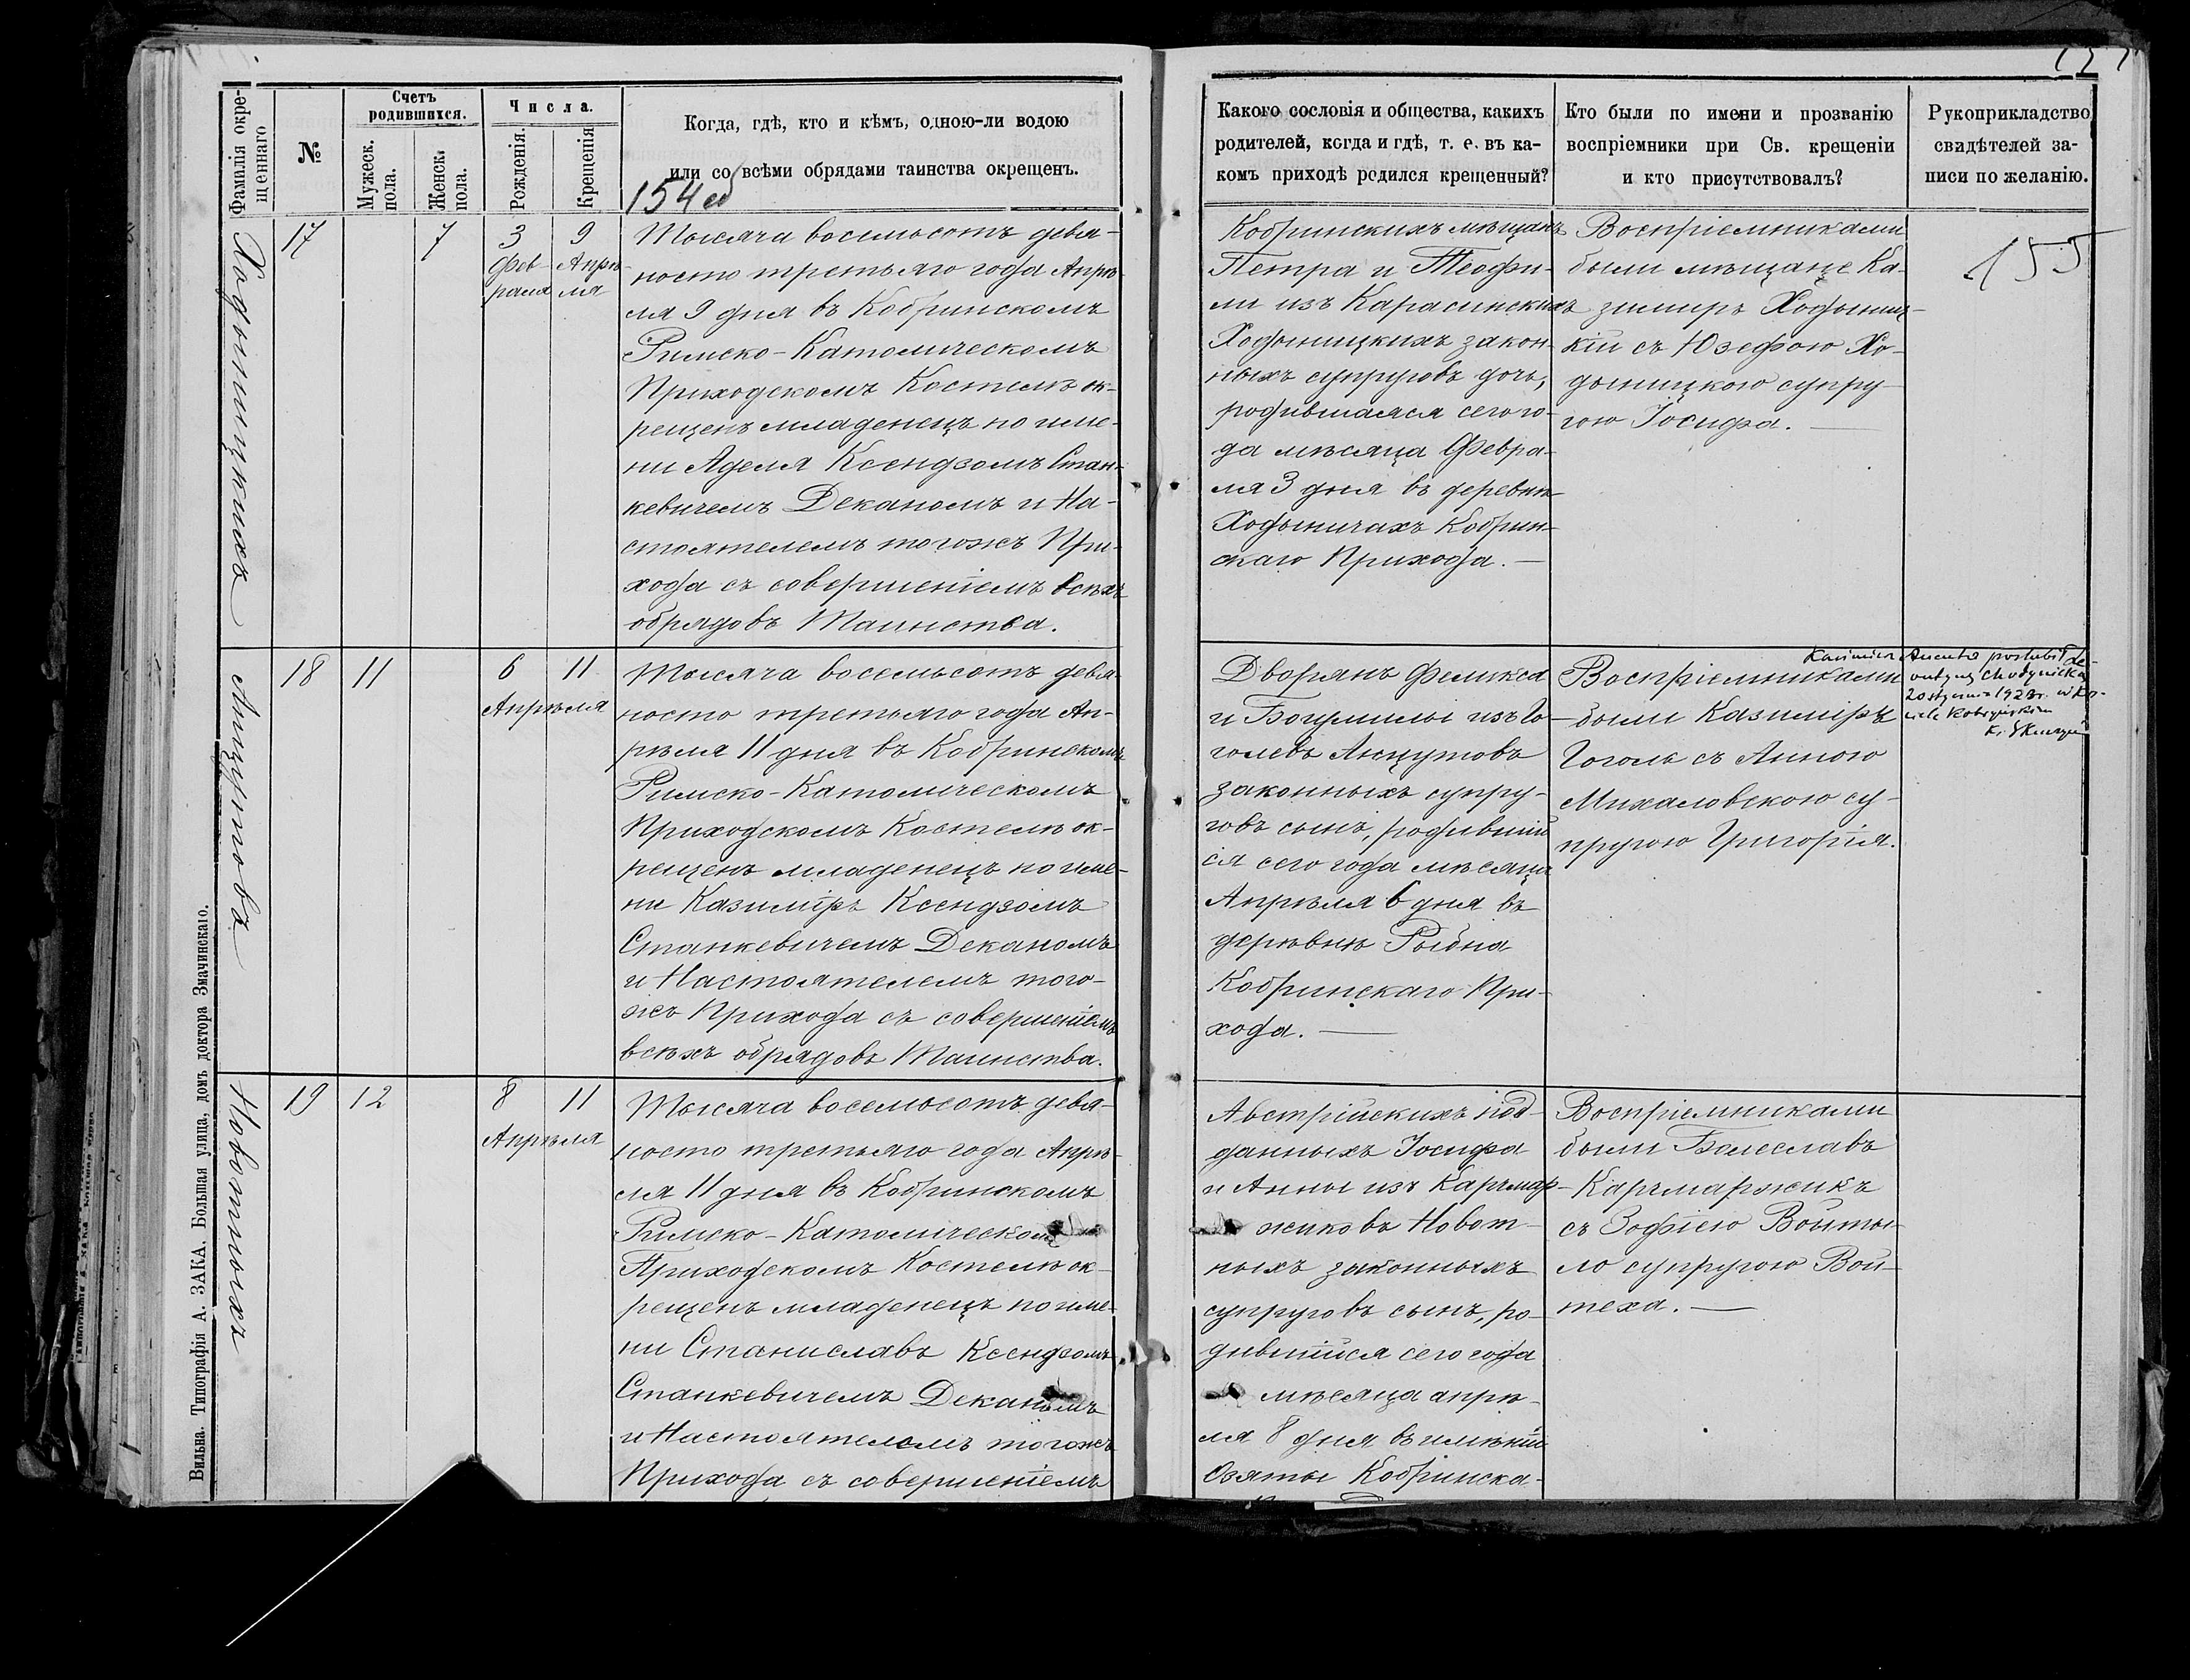 Фамилія окре-
щеннаго
№
Счетъ
родившихся.
Мужеск.
пола.
Женск.
пола.
Числа.
Рожденія.
Крещенія
Когда, гдѣ, кто и кѣмъ, одною-ли водою
или со всѣми обрядами таинства окрещенъ.
154 об
Ходыницкихъ
17
7
3
Фев-
раля
9
Апрѣ-
ля
Тысяча восемьсотъ девя-
носто третьяго года Апрѣ-
ля 9 дня въ Кобринскомъ
Римско-Католическомъ
Приходскомъ Костелѣ ок-
рещенъ младенецъ по име-
ни Аделя Ксендзомъ Стан-
кевичемъ Деканомъ и На-
стоятелемъ тогожъ При-
хода съ совершеніемъ всѣхъ
обрядовъ Таинства.
Анцутовъ
18
11
6
11
Апрѣля
Тысяча восемьсотъ девя-
носто третьяго года Ап-
рѣля 11 дня въ Кобринскомъ
Римско-Католическомъ
Приходскомъ Костелѣ ок-
рещенъ младенецъ по име-
ни Казиміръ Ксендзомъ
Станкевичемъ Деканомъ
и Настоятелемъ того-
жъ Прихода съ совершеніемъ
всѣхъ обрядовъ Таинства.
Новотныхъ
19
12
8
11
Апрѣля
Тысяча восемьсотъ девя-
носто третьяго года Апрѣ-
ля 11 дня въ Кобринскомъ
Римско-Католическомъ
Приходскомъ Костелѣ ок-
рещенъ младенецъ по име-
ни Станиславъ Ксендзомъ
Станкевичемъ Деканомъ
и Настоятелемъ тогожъ
Прихода съ совершеніемъ
Вильна. Типографія А. ЗАКА, Большая улица, домъ доктора Змачинскаго.
Какого сословія и общества, какихъ
родителей, когда и гдѣ, т. е. въ ка-
комъ приходѣ родился крещенный?
Кто были по имени и прозванію
воспріемники при Св. крещеніи
и кто присутствовалъ?
Рукоприкладство
свидѣтелей за-
писи по желанію.
Кобринскихъ мѣщанъ
Петра и Теофи-
ли изъ Карасинскихъ
Ходыницкихъ закон-
ныхъ супруговъ дочь,
родившаяся сего го-
да мѣсяца Февра-
ля 3 дня въ деревнѣ
Ходыничахъ Кобрин-
скаго Прихода.
Воспріемниками
были мѣщане Ка-
зимиръ Ходыниц-
кій съ Юзефою Хо-
дыницкою супру-
гою Іосифа.
155
Дворянъ Феликса
и Богумилы изъ Го-
голевъ Анцутовъ
законныхъ супру-
говъ сынъ, родившій
ся сего года мѣсяца
Апрѣля 6 дня въ
деревнѣ Рыбна
Кобринскаго При-
хода.
Воспріемниками
были Казиміръ
Гоголь съ Анною
Михаловскою су-
пругою Григорія.
Kazimierz Ancuta poślubił Le-
ontynę Chodynicką
20 stycznia 1923 r. w ko-
ściele Kobryńskim
Австрійскихъ под-
данныхъ Іосифа
и Анны изъ Карчмар-
жиковъ Новот-
ныхъ законныхъ
супруговъ сынъ, ро-
дившійся сего года
мѣсяца апрѣ-
ля 8 дня въ имѣніи
Озяты Кобринска-
Воспріемниками
были Болеславъ
Карчмаржикъ
съ Зофіею Войты-
ло супругою Вой-
теха.